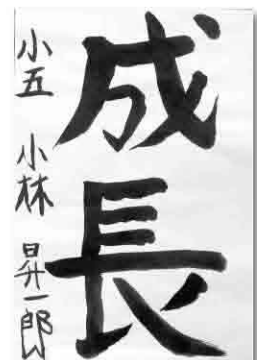 成長
小五 小林 昇一郎